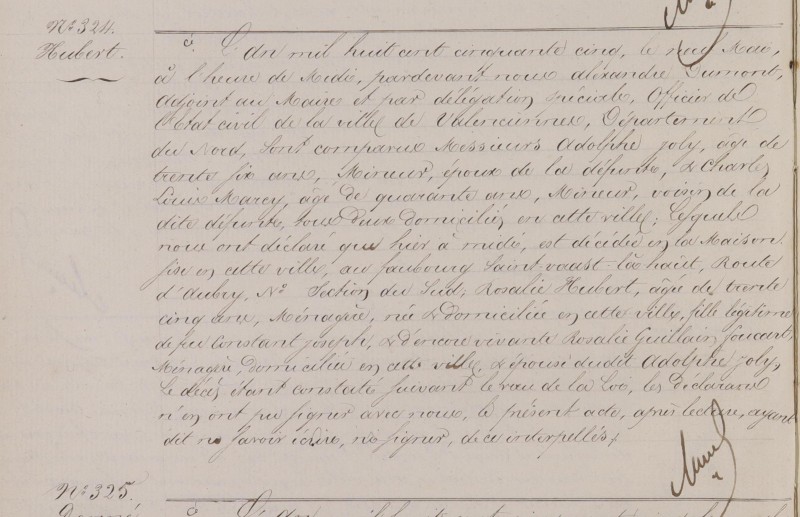 N° 324.
Hubert.
L'an mil huit cent cinquante cinq, le neuf Mai,
à l'heure de Midi, pardevant nous Alexandre Dumont,
adjoint au Maire et par délégation spéciale, Officier de
l'Etat civil de la ville de Valenciennes, Département
du Nord, sont comparus Messieurs Adolphe Joly, âgé de
trente six ans, Mineur, époux de la défunte, & Charles
Louis Marcy, âgé de quarante ans, Mineur, voisin de la
dite défunte, tous deux domiciliés en cette ville; lesquels
nous ont déclaré que hier à midi, est décédée en la Maison
sise en cette ville, au faubourg Saint-vaast-là haut, Route
d'Aubry, N° Section du Sud, Rosalie Hubert, âgée de trente
cinq ans, Ménagère, née & domiciliée en cette ville, fille légitime
de feu Constant Joseph, & d'encore vivante Rosalie Guillain foucart,
Ménagère, domiciliée en cette ville, & épouse dudit Adolphe Joly,
Le décès étant constaté suivant le vœu de la Loi, les Déclarans
n'en ont pu signer avec nous, le présent acte, après lecture, ayant
dit ne savoir écrire, ni signer, de ce interpellés
N° 325.
L'an mil huit cent cinquante